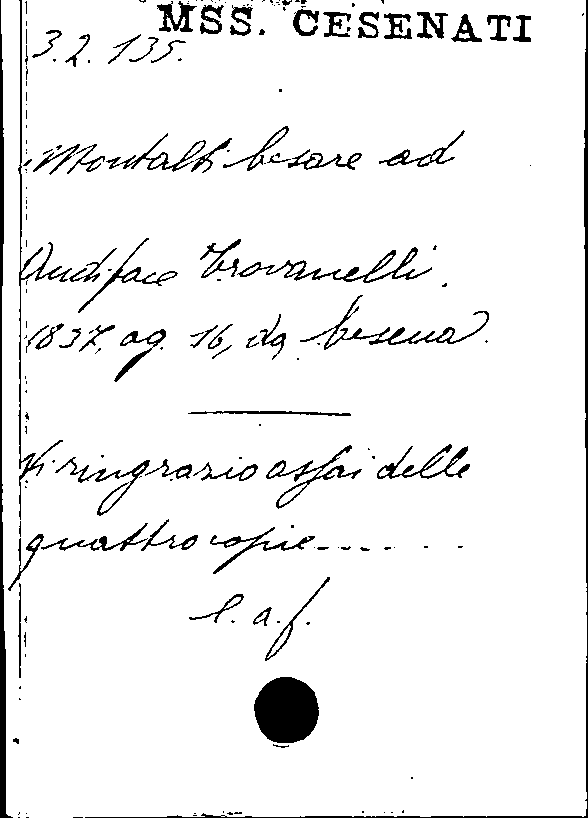 MSS. CESENATI
3.2.135.
Montalti Cesare ad
Audiface Trovanelli.
1837, ag. 16, da Cesena.
Vi ringrazio assai delle
quattro copie.......
l. a. f.